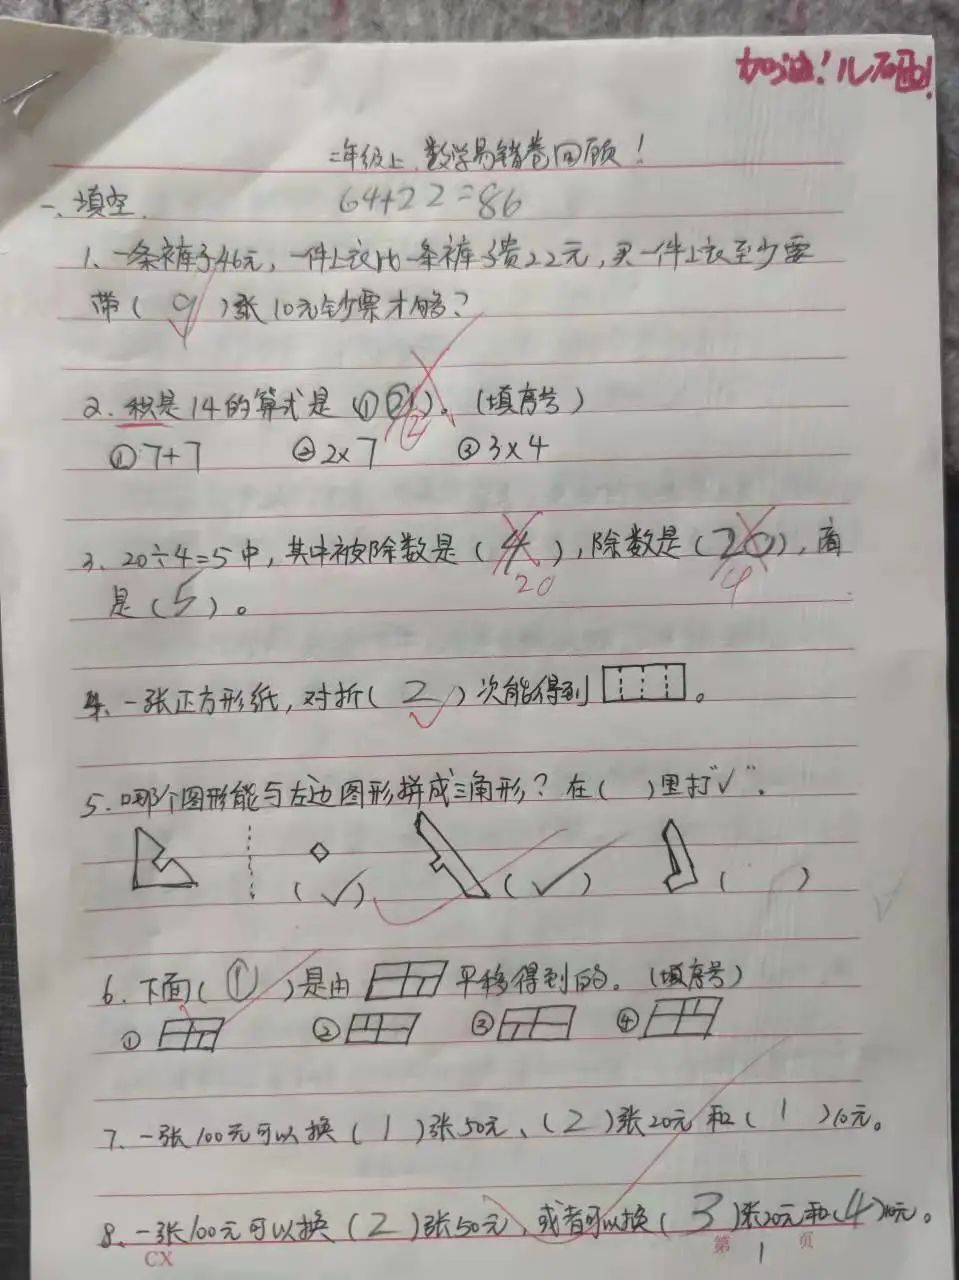 加油!儿砸!
二年级上,数学易错卷回顾!
一、填空.
64+22=86
1、一条裤子46元,一件上衣比一条裤子贵22元,买一件上衣至少需
带(9)张10元钞票才够?
2.积是14的算式是(①②)。(填序号)
②
①7+7 ②2×7 ③3×4
3.20÷4=5中,其中被除数是(4),除数是(20),商
20 4
是(5)。
4.一张正方形纸,对折(2)次能得到 。
5.哪个图形能与左边图形拼成三角形?在( )里打"✓".
(✓) (✓) ( )
6.下面(①)是由 平移得到的。(填序号)
① ② ③ ④
7.一张100元可以换(1)张50元、(2)张20元和(1)10元。
8、一张100元可以换(2)张50元,或者可以换(3)张20元和(4)10元。
CX 第 1 页